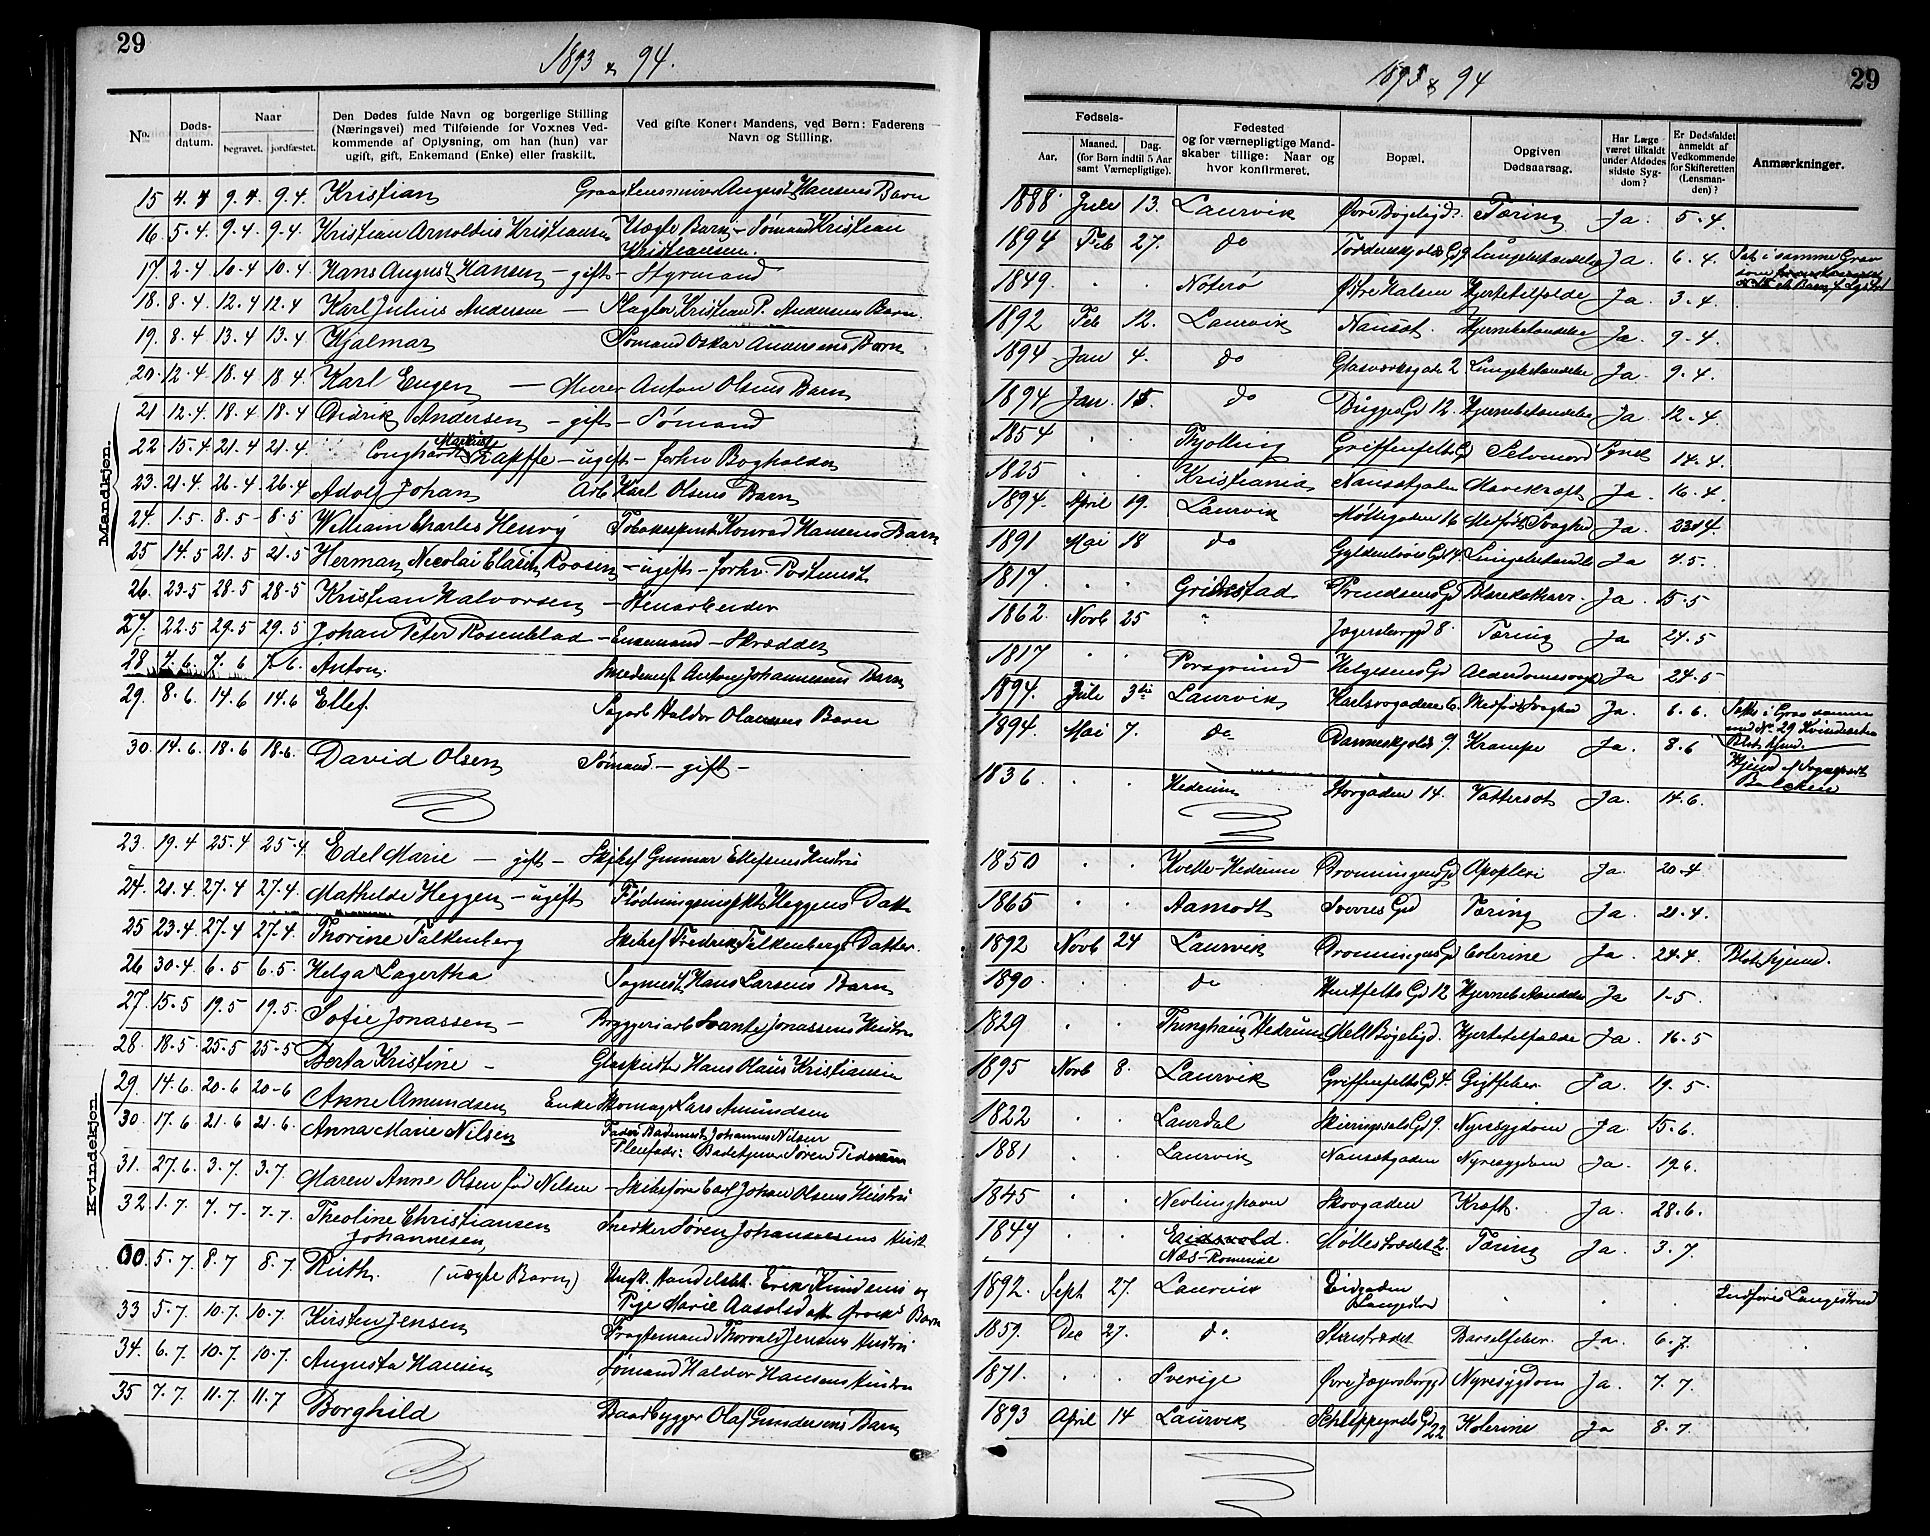 29
1893 & 94.
1893 & 94
29
No.
Døds-
datum.
Naar
begravet.
jordfæstet.
Den Dødes fulde Navn og borgerlige Stilling
(Næringsvei) med Tilføiende for Voxnes Ved-
kommende af Oplysning, om han (hun) var
ugift, gift, Enkemand (Enke) eller fraskilt.
Ved gifte Koner: Mandens, ved Børn: Faderens
Navn og Stilling.
Fødsels-
Aar.
Maaned.
Dag.
(for Børn indtil 5 Aar
samt Værnepligtige).
Fødested
og for værnepligtige Mand-
skaber tillige: Naar og
hvor konfirmeret.
Bopæl.
Opgiven
Dødsaarsag.
Har Læge
været tilkaldt
under Afdødes
sidste Syg-
dom?
Er Dødsfaldet
anmeldt af
Vedkommende
for Skifteretten
(Lensman-
den)?
Anmærkninger.
Mandkjøn.
15 4.4 9.4 9.4. Kristian August Hansens Barn 1888 Juli 13. Laurvik Øvre Bøgeligd. Tæring Ja 5-4.
16. 5-4. 9.4. 9.4. Kristian Arnoldus Kristiansen Uægte Barn - Sømand Kristian
Kristiansen. 1894 Feb 27. do Lungebetændelse Ja 6.4. Sat i samme Grav
17. 2-4 10-4 10.4. Hans August Hansen - gift - Styrmand 1849. Nøterø Østre Halsen Hjertetilfælde Ja 3-4.
18. 8-4. 12.4 12.4. Karl Julius Andersen - Slagter Kristian P. Andersens Barn. 1892 Feb 12. Laurvik Nanset. Hjernebetændelse Ja. 9-4.
19. 8.4 13.4 13.4. Hjalmar Sømand Oskar Andersens Barn 1894 Jan 4. do Glasværksgade 2 Lungebetændelse Ja. 9-4.
20. 12.4. 18.4 18.4. Karl Eugen - Murer Anton Olsens Barn 1894 Jan. 15. do Bugges Gd 12. Hjernebetændelse Ja. 12-4.
21 12-4. 18.4 18.4. Didrik Andersen - gift - Sømand 1854 Thjølling Griffenfelts Gd Selvmord Synet 14-4.
22 15.4 21.4 21.4. - ugift - forhv Bogholder 1825 Kristiania Nansetgaden Mavekræft Ja. 16-4.
23. 21.4. 26.4 26.4 Adolf Johan Arb. Karl Olsens Barn 1894. April 19. Laurvik Møllegaden 16 Medfødt Svaghed Ja. 23/4.
24. 1.5. 8.5 8.5 William Charles Henry Konrad Hansens Barn 1891 Mai 18 do Gyldenløves Gd 14. Lungebetændelse Ja 4.5.
25 14.5 21.5 21.5 Herman Nicolai Clasen Roosen - ugift - forhv. Postmest 1817. Grimstad Prindsens Gd Ja. 15-5
26. 23.5 28.5 28-5 Kristian Halvorsen - Stenarbeider 1862. Novb 25 " Jegersborggd 8. Tæring Ja 24.5
27. 22.5 29.5 29.5 Johan Peter Rosenblad - Enkemand - Skrædder 1817 Porsgrund Helgesens Gd Alderdomssvagh Ja 24-5
28 7.6. 7.6 7.6. Anton. Anton Johannesens Barn 1894. Juli 3die Laurvik Karlsrogaden 6. Medfødt Svaghed Ja. 8.6.
29. 8.6 14.6 14.6 Ellef. Sagarb Haldor Olaussens Barn 1894. Mai 7. do Danneskjolds 9. Krampe Ja. 8.6
30. 14.6. 18.6 18.6. David Olsen Sømand - gift - 1836. Hedrum Storgaden 14. Vattersot Ja. 14.6.
Kvindekjøn
23. 19.4 25.4 25.4. Edel Marie - gift - Skibsf Gunnar Ellefsens Hustru 1850 Kvelle-Hedrum Dronningens Gd Apoplexi Ja. 20-4
24. 21.4. 27.4 27.4. Mathilde Heggen - ugift Heggens Datt 1865 Aamodt Sverres Gd Tæring Ja. 21-4.
25 23.4. 27.4 27.4. Thorine Falkenberg Skibsf Fredrik Falkenbergs Datter. 1892 Novb 24 Laurvik Dronningens Gd Colerine Ja. 24-4. Blot hjemd.
26 30.4 6.5 6.5. Helga Lagertha Sagmest Hans Larsens Barn 1890. do Huitfelts Gd 12 Hjernebetændelse Ja 1-5
27. 15.5 19.5 19.5. Sofie Jonassen - Bryggeriarb Svante Jonassens Hustru 1829 Hedrum Hjertetilfælde Ja. 16-5
28. 18.5 25.5 25-5 Berta Kristine - Hans Olaus Kristiansen 1895 Novb 8. Laurvik Griffenfelts Gd 4. Gigtfeber Ja. 19.5
29. 14.6. 20.6 20-6 Anne Amundsen Enke Skomag Lars Amundsen 1822 Laurdal Skiringssals Gd 9. Nyresygdom Ja. 15-6.
30. 17.6 21.6 21.6. Anna Marie Nilsen Fader: Bademest. Johannes Nilsen
Pleiefader: Badetjener Søren Pedersen 1881 Laurvik Nansetgaden Nyresygdom Ja. 19.6.
31. 27.6. 3.7. 3.7. Maren Anne Olsen fød Nilsen - Skibsfører Carl Johan Olsens Hustru 1845 Nevlunghavn Skovgaden Kræft. Ja. 28-6.
32 1.7. 7.7. 7.7. Theoline Christiansen
Johannesen, Snedker Søren Johannesens Hustr 1847 Eidsvold.
Næs-Romerike Møllestrædet 2. Tæring Ja 3.7.
00. 5.7 8.7 8.7. Ruth. (uægte Barn) Ungk. Handelsbet. Erik Knudsens og
Pige Marie Barn 1892. Sept 27. Laurvik
Langestrand Indføres Langestrand
33 5.7. 10.7. 10.7. Kirsten Jensen Fragtemand Thorvald Jensens Hustru 1859. Dec 27. do. Stenstrædet Barselfeber. Ja. 6.7.
34. 6.7. 10.7. 10.7. Augusta Hansen Sømand Haldor Hansens Hustru 1871. Sverige Øvre Jegersborggd Nyresygdom Ja. 7.7.
35 7.7. 11.7 11.7 Borghild Baadbygger Olaf Gundersens Barn 1893 April 14 Laurvik Schleppegrels Gd 22 Kolerine Ja 8.7.